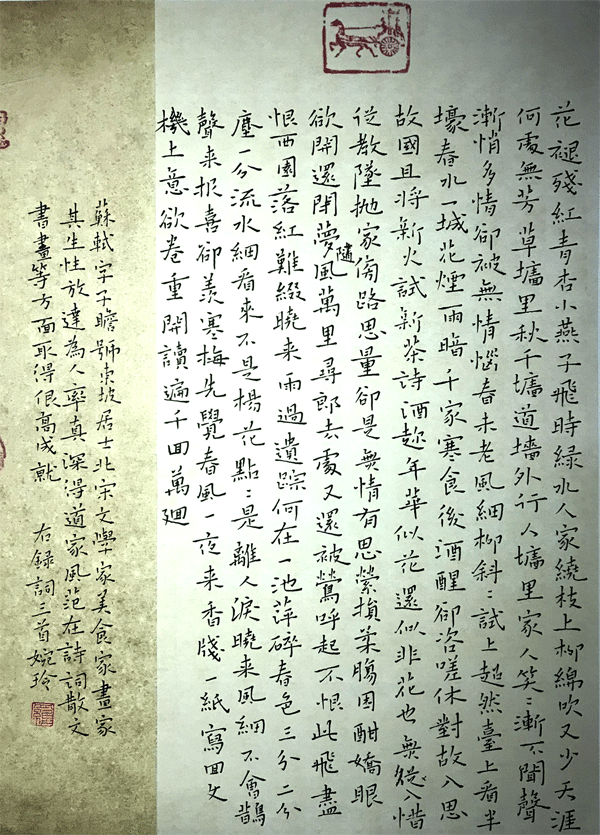 花褪殘紅青杏小燕子飛時緑水人家繞枝上柳綿吹又少天涯
何處無芳草墻里秋千墻道墻外行人墻里家人笑〻漸不聞聲
漸悄多情卻被無情惱春未老風細柳斜〻試上超然臺上看半
壕春水一城花煙雨暗千家寒食後酒醒卻咨嗟休對故人思
故國且將新火試新茶詩酒趁年華似花還似非花也無從人惜
從教墜拋家傍路思量卻是無情有思縈損柔腸困酣嬌眼
欲開還閉夢隨風萬里尋郎去處又還被鶯呼起不恨此飛盡
恨西園落紅難綴曉來雨過遺踪何在一池萍碎春色三分二分
塵一分流水細看來不是楊花點〻是離人淚曉來風細不會鵲
聲來报喜卻羨寒梅先覺春風一夜來香牋一紙寫回文
機上意欲卷重開讀遍千回萬迴
蘇軾字子瞻號東坡居士北宋文學家美食家畫家
其生性放達為人率真深得道家風范在詩詞散文
書畫等方面取得很高成就 右録詞三首婉玲